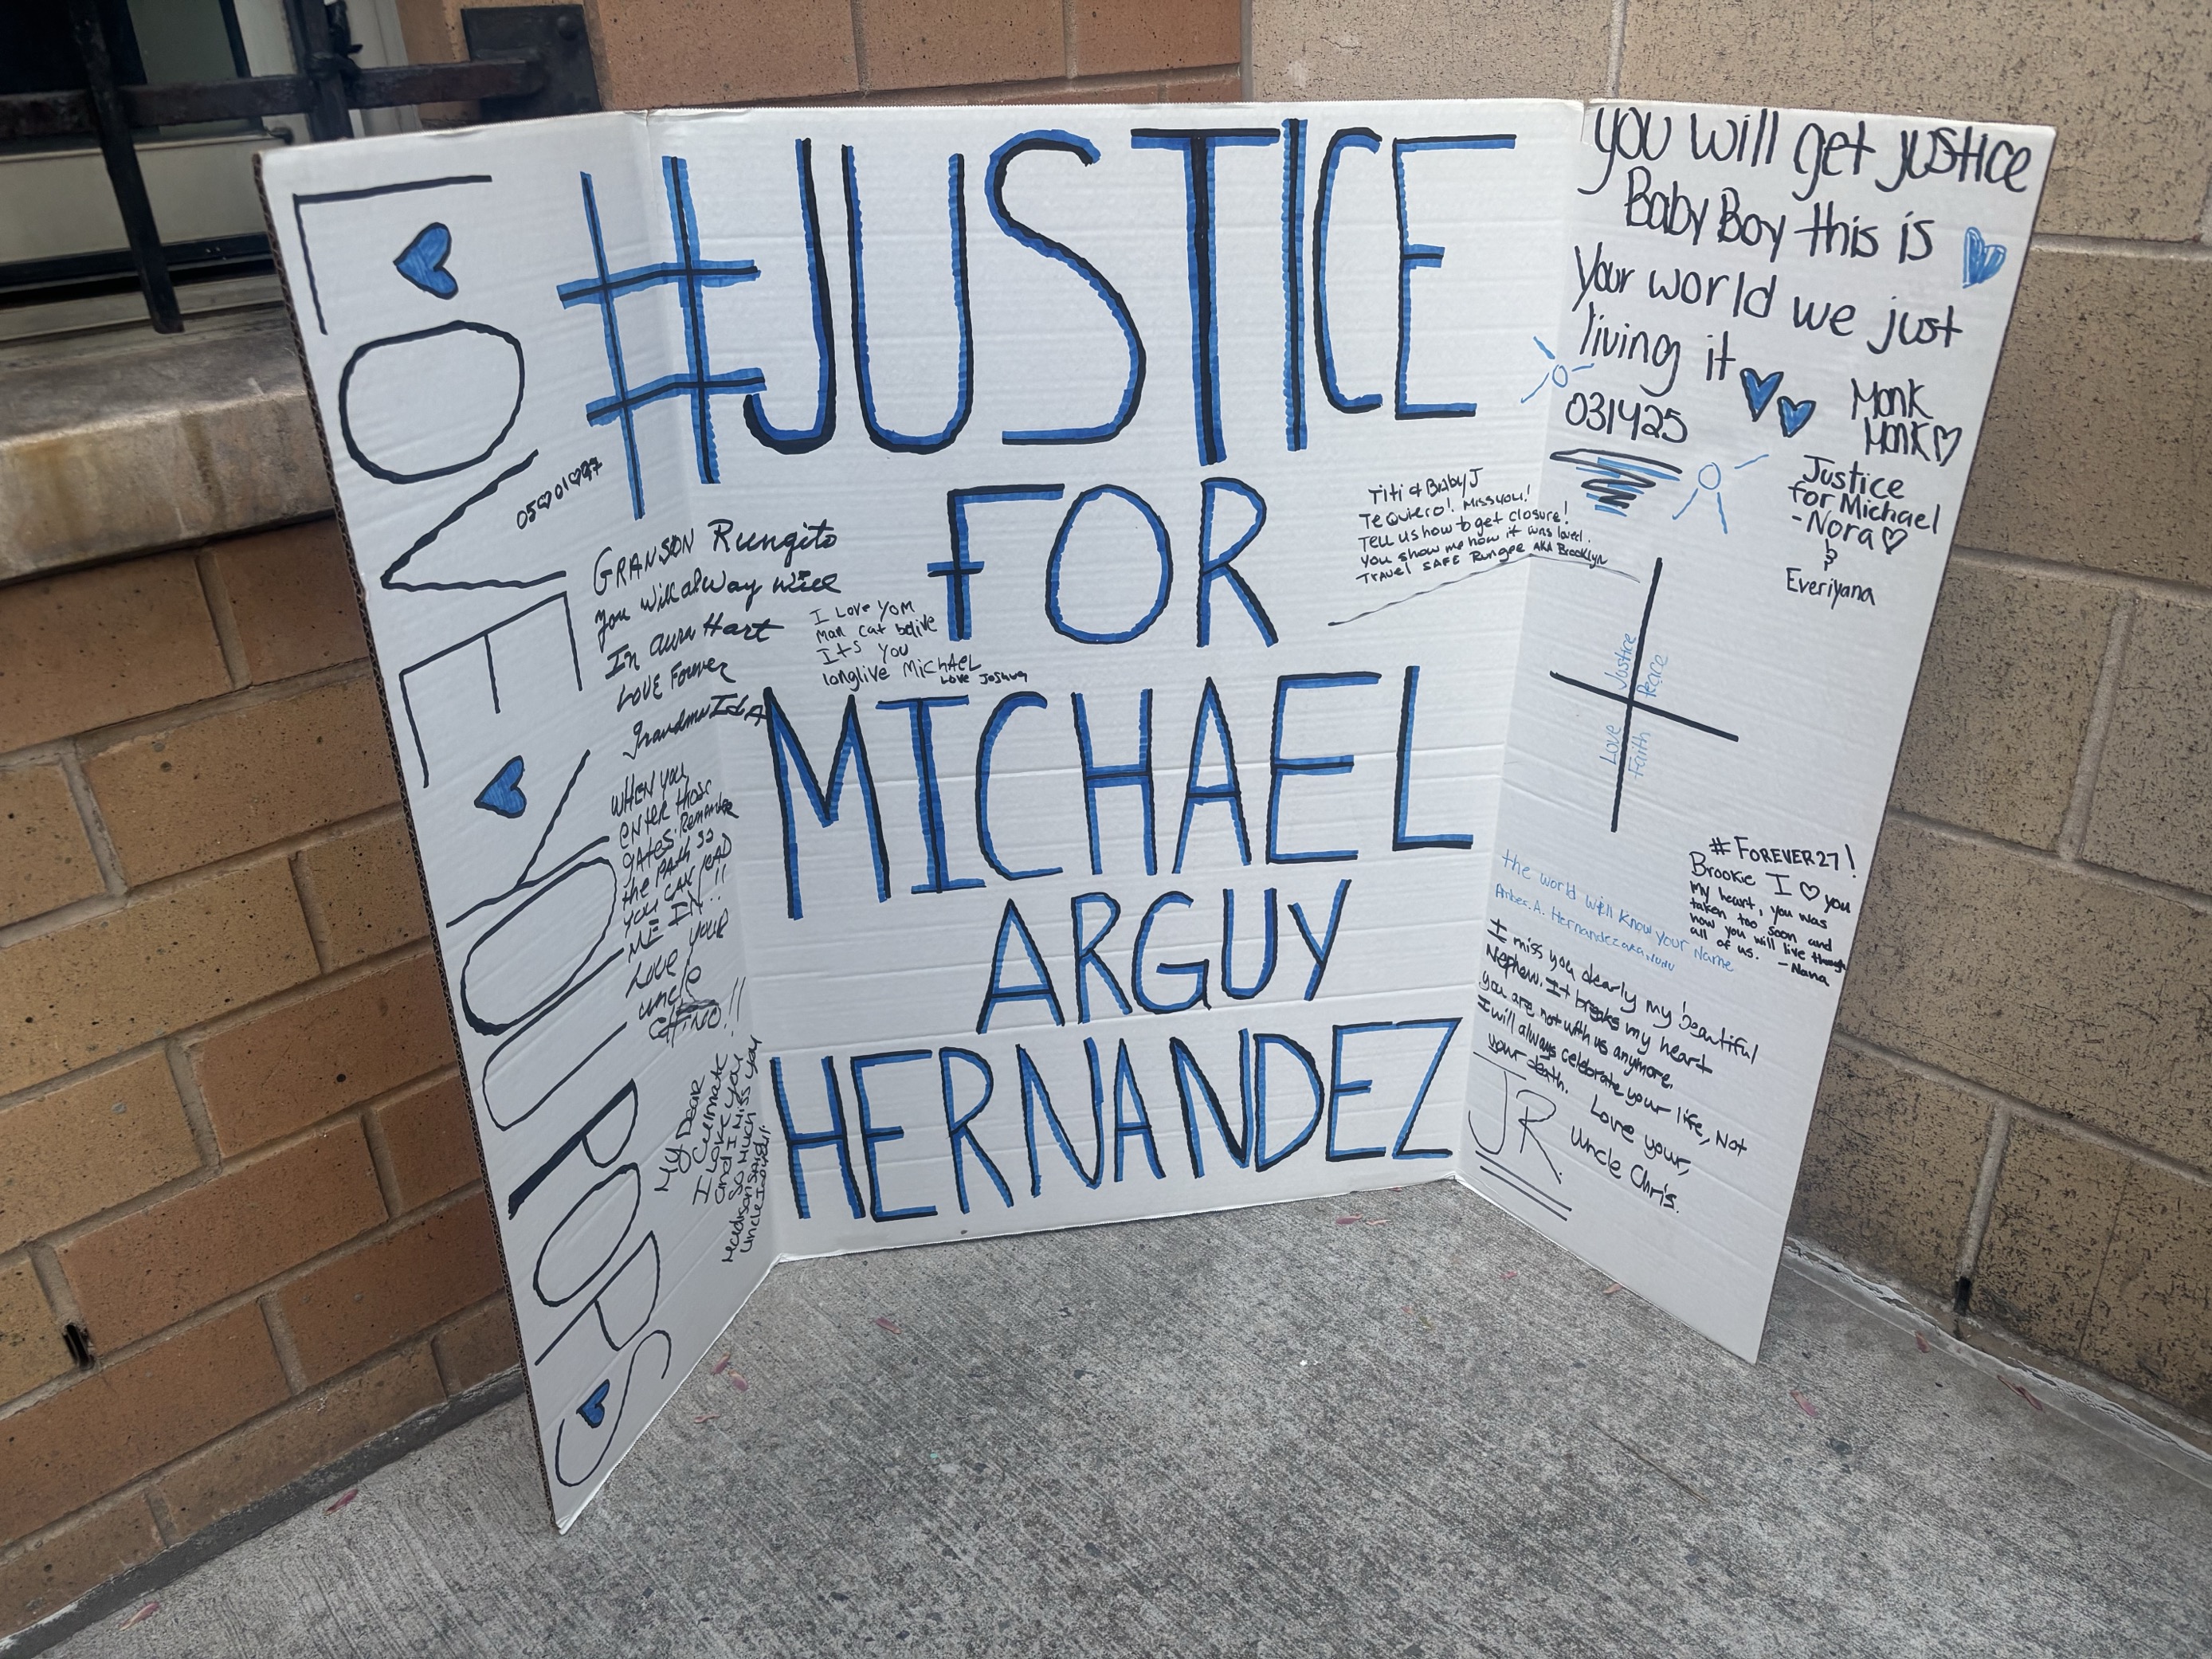 LOVE YOU POPS
05♡01♡97
GRANSON Rungito
you will alway will
In aura Hart
LOVE Forever
Grandma Ida
WHEN YOU
ENTER those
gates. Remember
the PATH SO
YOU CAN LEAD
ME IN!!
Love your
uncle
CHINO!!
My Dear
Cellmate
I Love You
and I Miss you
so much
Uncle
#JUSTICE
FOR
MICHAEL
ARGUY
HERNANDEZ
I Love YOM
Man cat belive
Its you
longlive MichAEL
Love Joshua
Titi & Baby J
Te Quiero! Miss you!
Tell us how to get closure!
You show me how it was loved.
Travel SAFE Rungee AKA Brooklyn
you will get justice
Baby Boy this is
Your world we just
living it
031425
Monk
Monk♡
Justice
for Michael
-Nora♡
&
Everiyana
Justice
Peace
Love
Faith
#FOREVER27!
Brookie I ♡ you
my heart, you was
taken too soon and
now you will live through
all of us. -Nana
the world will know your Name
Amber. A. Hernandez aka NuNu
I miss you dearly my beautiful
Nephew. It breaks my heart
you are not with us anymore.
I will always celebrate your life, Not
your death.
Love your,
Uncle Chris.
JR.